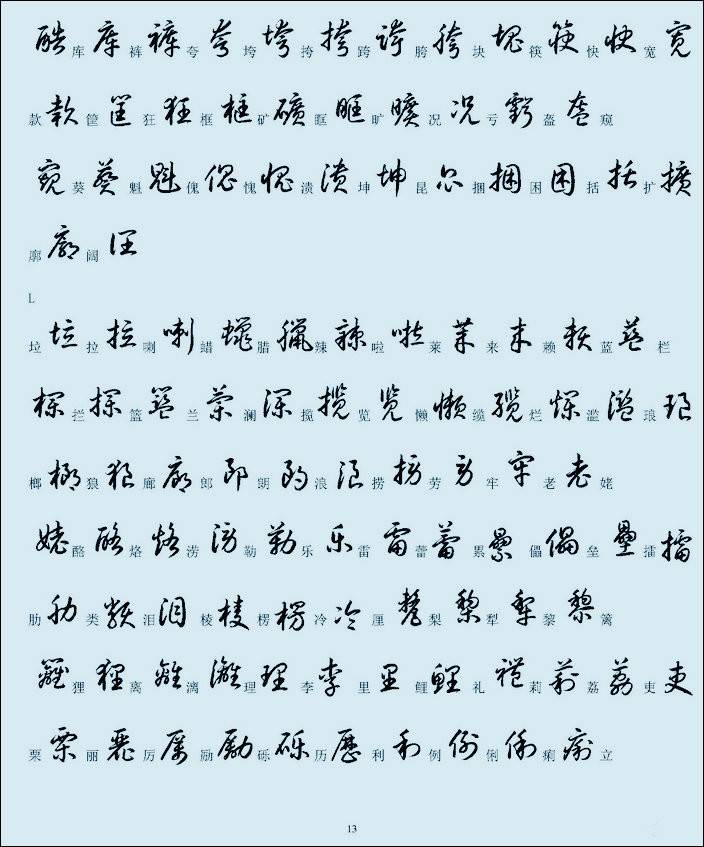 酷 库 庫 裤 褲 夸 夸 垮 垮 挎 挎 跨 跨 胯 胯 块 塊 筷 筷 快 快 宽 寬
款 款 筐 筐 狂 狂 框 框 矿 礦 眶 眶 旷 曠 况 况 亏 虧 盔 盔 窥
窺 葵 葵 魁 魁 傀 傀 愧 愧 溃 潰 坤 坤 昆 昆 捆 捆 困 困 括 括 扩 擴
廓 廓 阔 阔
L
垃 垃 拉 拉 喇 喇 蜡 蠟 腊 臘 辣 辣 啦 啦 莱 萊 来 來 赖 賴 蓝 藍 栏
欄 拦 攔 篮 籃 兰 蘭 澜 瀾 揽 攬 览 覽 懒 懶 缆 纜 烂 爛 滥 濫 琅 琅
榔 榔 狼 狼 廊 廊 郎 郎 朗 朗 浪 浪 捞 撈 劳 勞 牢 牢 老 老 姥
姥 酪 酪 烙 烙 涝 澇 勒 勒 乐 樂 雷 雷 蕾 蕾 累 纍 儡 儡 垒 壘 擂 擂
肋 肋 类 類 泪 泪 棱 棱 楞 楞 冷 冷 厘 釐 梨 梨 犁 犁 黎 黎 篱
籬 狸 狸 离 離 漓 灕 理 理 李 李 里 里 鲤 鯉 礼 禮 莉 莉 荔 荔 吏 吏
栗 栗 丽 麗 厉 厲 励 勵 砾 礫 历 歷 利 利 例 例 俐 俐 痢 痢 立
13